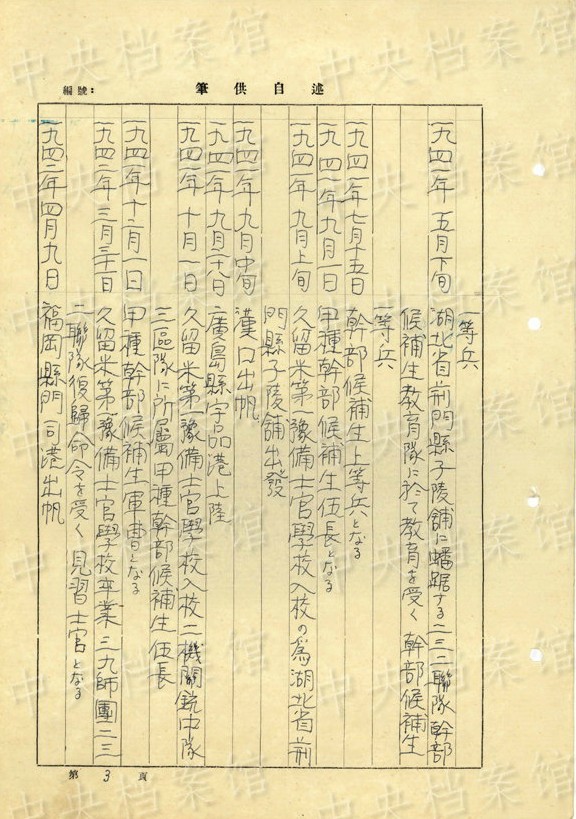 述自供筆
編號：
一等兵
一九四一年 五月下旬 湖北省荊門縣子陵舖に蟠踞する二三二聯隊幹部
候補生教育隊に於て教育を受く 幹部候補生
一等兵
一九四一年七月十五日 幹部候補生上等兵となる
一九四一年九月一日 甲種幹部候補生伍長となる
一九四一年 九月上旬 久留米第一豫備士官學校入校の為湖北省荊
門縣子陵舖出發
一九四一年九月中旬 漢口出帆
一九四一年九月 廣島縣宇品港上陸
一九四一年 十月一日 久留米第一豫備士官學校入校二機關銃中隊
三區隊に所屬甲種幹部候補生伍長
一九四一年十二月一日 甲種幹部候補生軍曹となる
一九四二年三月三十一日 久留米第一豫備士官學校卒業 三九師團二三
二聯隊復歸命令を受く 見習士官となる
一九四二年四月九日 福岡縣門司港出帆
第 3 頁
中央档案馆